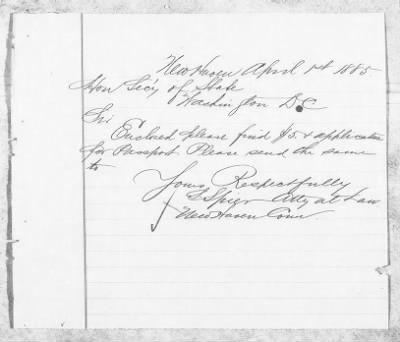 New Haven April 1st 1885
Hon Sec'y of State
Washington D.C
Sir
Enclosed please find $5 & application
for Passport Please send the same
to
Yours Respectfully
Spier Atty at Law
New Haven Conn